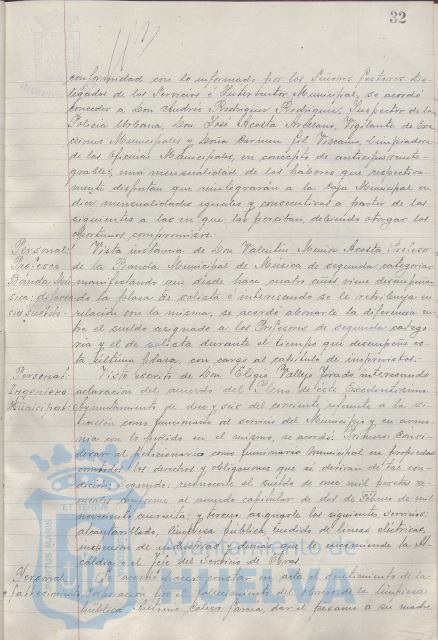 32
conformidad con lo informado por los Señores Gestores De-
legados de los Servicios é Interventor Municipal, se acordó
conceder a Don Andrés Rodríguez Rodríguez, Inspector de la
Policia Urbana, Don José Acosta Arellano, Vigilante de
Municipales y Doña Carmen Gil Vizcaino, Limpiadora
de las Oficinas Municipales, en concepto de anticipo reinte-
grable, una mensualidad de los haberes que respectiva-
mente disfrutan que reintegrarán a la Caja Municipal en
diez mensualidades iguales y consecutivas a partir de las
siguientes a las en que las perciban, debiendo otorgar los
oportunos compromisos.-
Personal:
Profesor
Banda Mu
nicipal:
Vista instancia de Don Valentín Muñoz Acosta, Profesor
de la Banda Municipal de Música de segunda categoria
manifestando que desde hace cuatro años viene desempeñan-
do la plaza de solista é interesando se le retribuya en
relación con la misma, se acordó abonarle la diferencia en-
tre el sueldo asignado a los Profesores de segunda catego-
ría y el de solista durante el tiempo que desempeñe es-
ta última plaza, con cargo al capítulo de imprevistos.-
Personal:
Ingeniero
Municipal:
Visto escrito de Don Eligio Vallejo interesando
aclaración del acuerdo del Pleno de este Excelentísimo
Ayuntamiento de diez y seis del corriente referente a la si-
tuación como funcionario al servicio del Municipio y en armo-
nia con lo pedido en el mismo, se acordó: Primero: Consi-
derar al peticionario como funcionario municipal en propiedad
con todos los derechos y obligaciones que se derivan de tal
condición; segundo: reconocerle el sueldo de once mil pesetas
conforme al acuerdo capitular de dos de Febrero de mil
novecientos cuarenta; y tercero: asignarle los siguientes servicios:
alcantarillado, limpieza pública, tendido de lineas eléctricas,
inspección de industrias y demás que le encomiende la Al-
caldia o el Jefe del Servicio de Obras.
Personal:
Fallecimiento
Se acordó hacer constar en acta el sentimiento de la
Corporación por el fallecimiento del obrero de la limpieza
pública Antonio Calero García, dar el pésame a su madre
ET TERRA
PORTUS MARIS
Ayuntamiento de
HUELVA